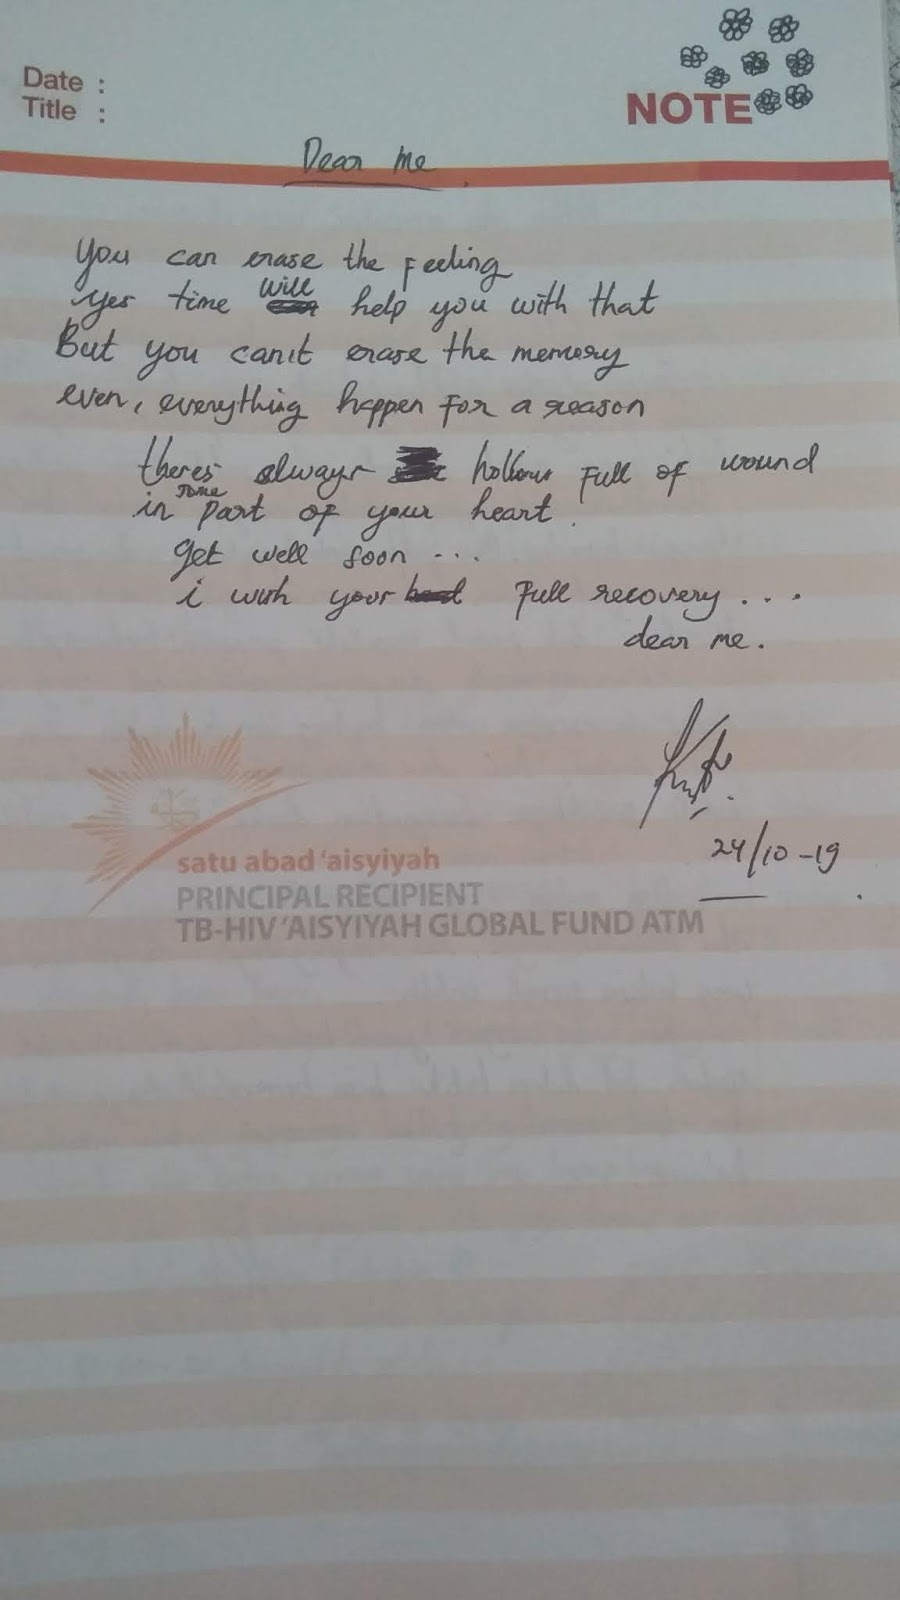 Date :
Title :
NOTE
Dear me
You can erase the feeling
yes time will help you with that
But you can't erase the memory
even, everything happen for a reason
theres always hollow full of wound
in some part of your heart.
get well soon ...
i wish your full recovery ...
dear me.
24/10-19
satu abad 'aisyiyah
PRINCIPAL RECIPIENT
TB-HIV 'AISYIYAH GLOBAL FUND ATM